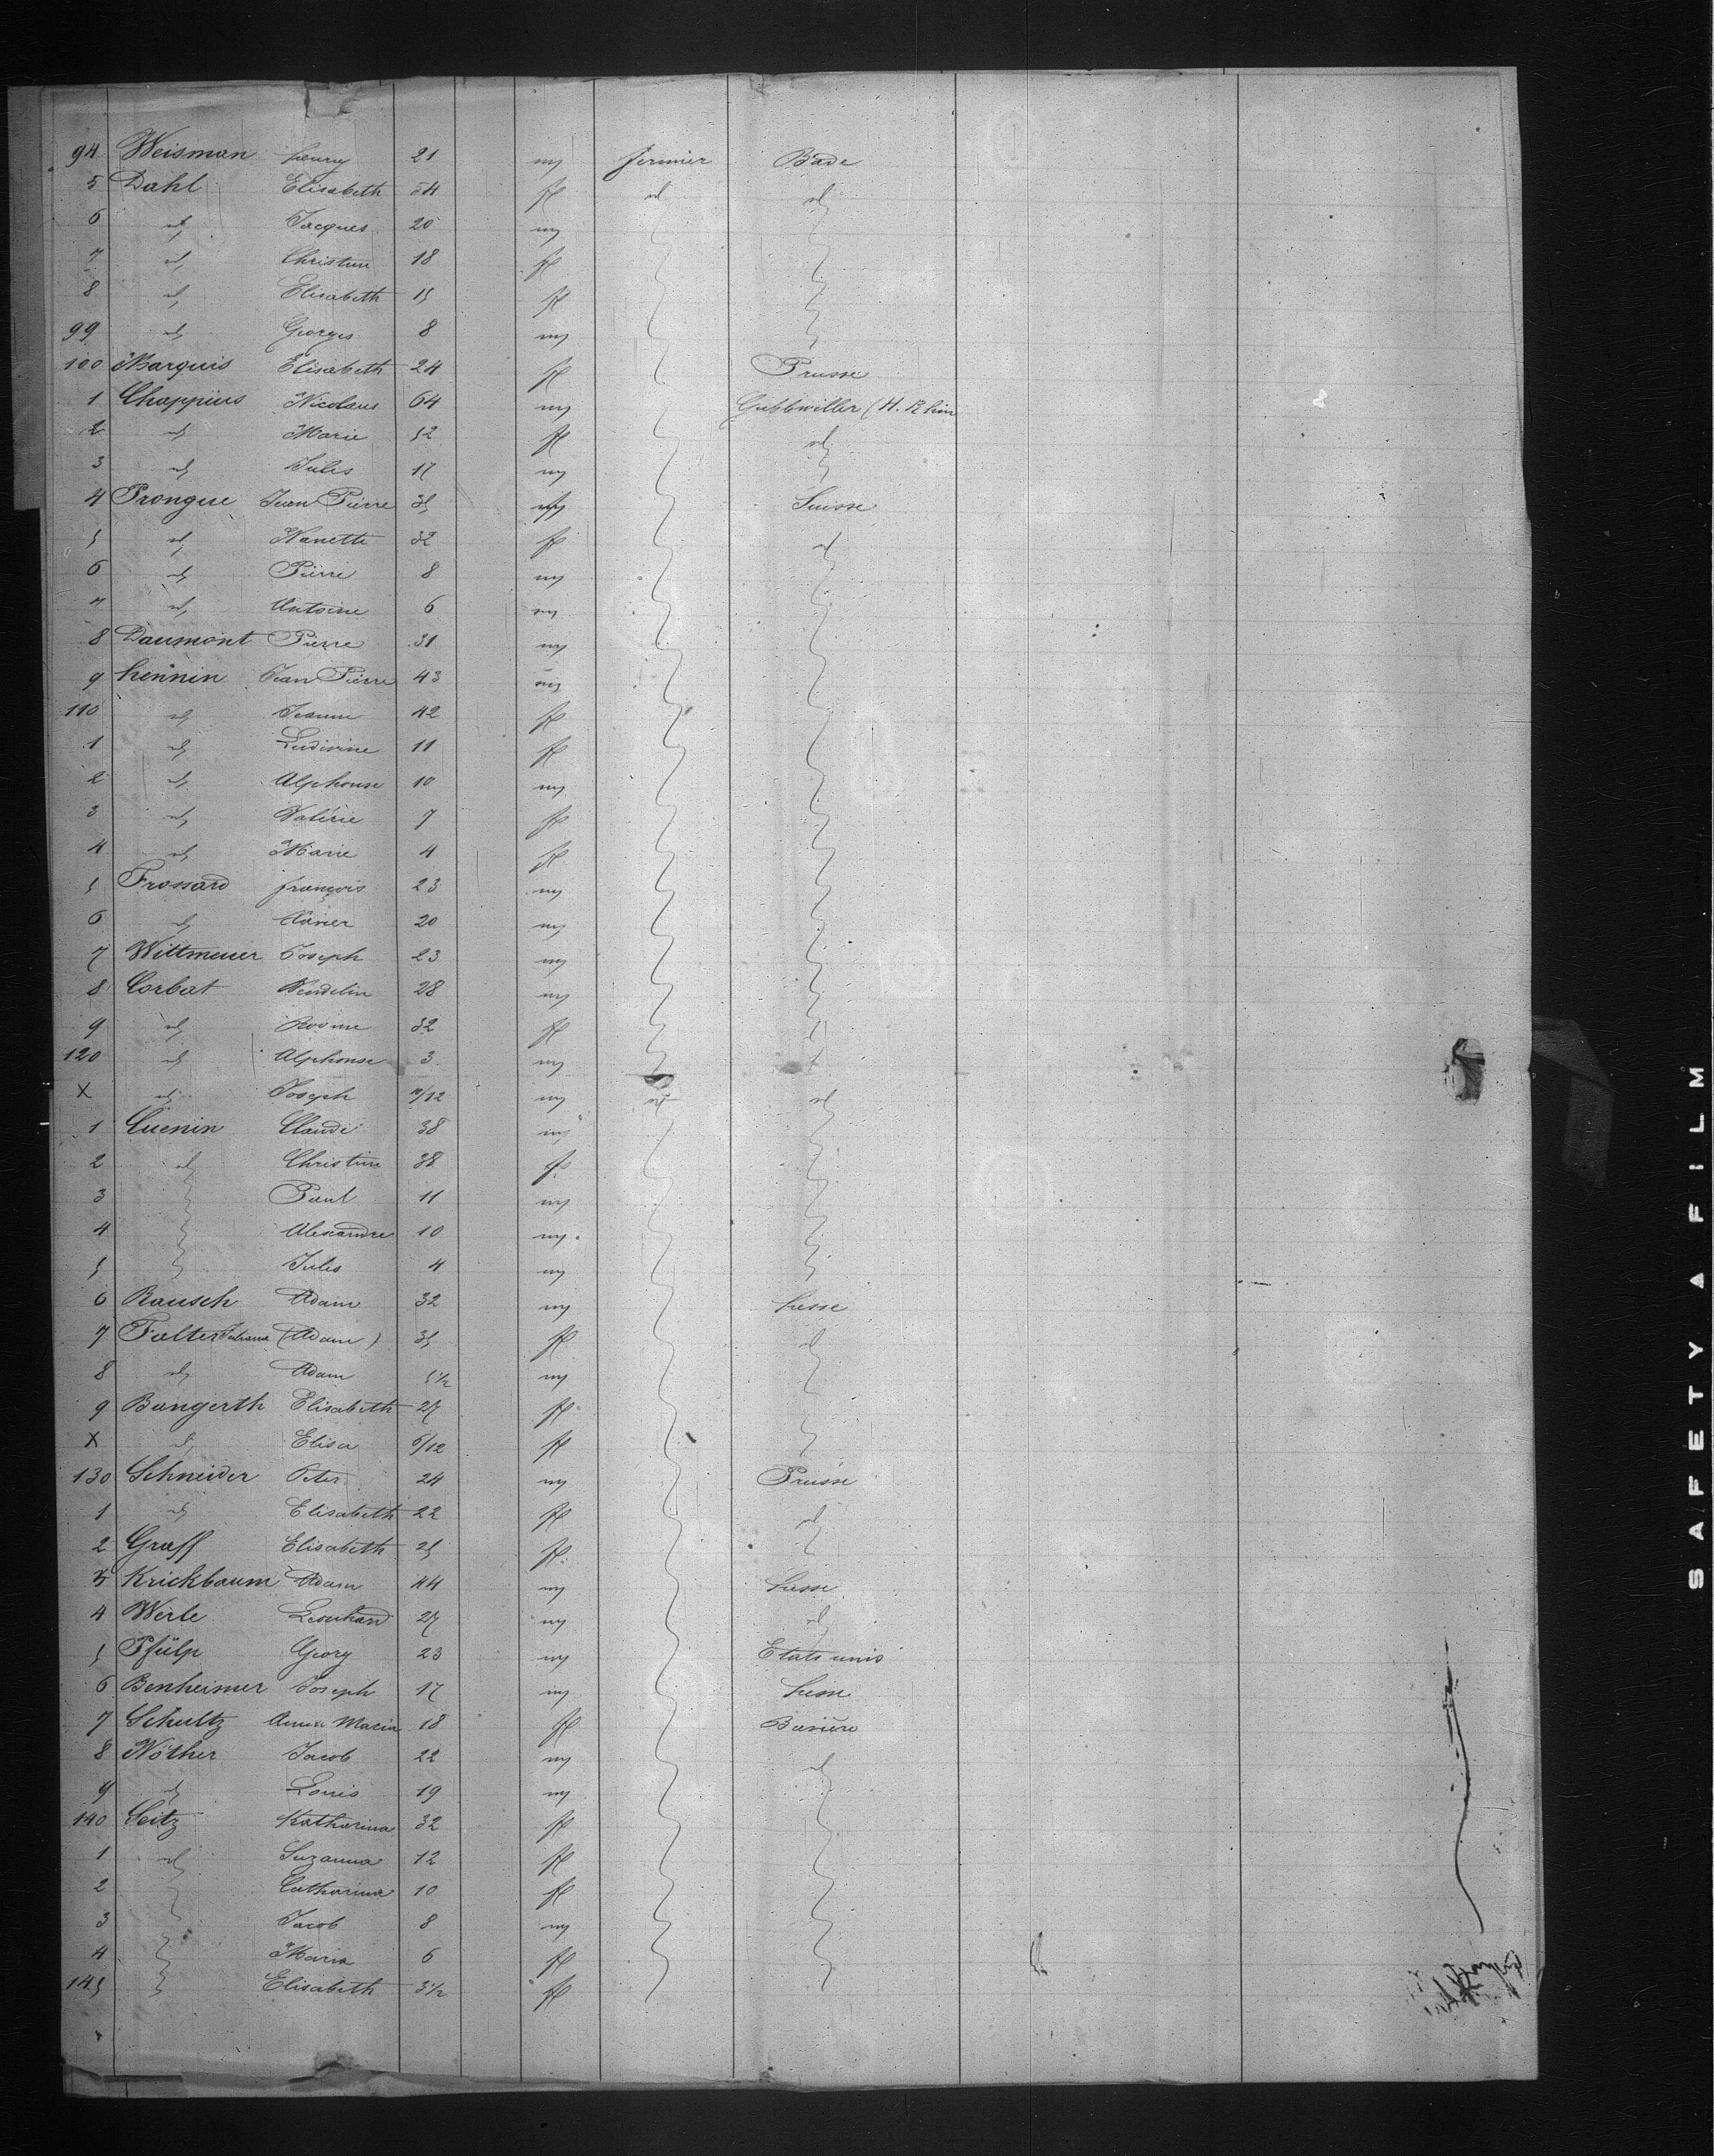 94 Weisman henry 21 m fermier Bade
5 Dahl Elisabeth 54 f id id
6 id Jacques 20 m
7 id Christine 18 f
8 id Elisabeth 15 f
99 id Georges 8 m
100 Marquis Elisabeth 24 f Prusse
1 Chappuis Nicolaus 64 m Gubbwiller (H. Rhin
2 id Marie 52 f id
3 id Jules 17 m
4 Prongue Jean Pierre 35 m Suisse
5 id Nanette 32 f id
6 id Pierre 8 m
7 id Antoine 6 m
8 Daumont Pierre 31 m
9 hennin Jean Pierre 43 m
110 id Jeanne 42 f
1 id Ludivine 11 f
2 id Alphonse 10 m
3 id Valérie 7 f
4 id Marie 4 f
5 Frossard françois 23 m
6 id Xavier 20 m
7 Wittmeuer Joseph 23 m
8 Corbat Wendelin 28 m
9 id Rosine 32 f
120 id Alphonse 3 m
X id Joseph 10/12 m id id
1 Cuenin Claude 38 m
2 id Christine 38 f
3 Paul 11 m
4 Alexandre 10 m
5 Jules 4 m
6 Rausch Adam 32 m hesse
7 Falter Juliana (Adam) 35 f id
8 id Adam 5 1/2 m
9 Bangerth Elisabeth 27 f
X id Elisa 6/12 f
130 Schneider Peter 24 m Prusse
1 id Elisabeth 22 f id
2 Graff Elisabeth 25 f
3 Krickbaum Adam 44 m hesse
4 Werle Leonhard 27 m id
5 Pfülp Georg 23 m Etats unis
6 Benheimer Joseph 17 m hesse
7 Schultz Anna Maria 18 f Bavière
8 Nöther Jacob 22 m id
9 id Louis 19 m
140 Seitz Katharina 32 f
1 id Suzanna 12 f
2 Catharina 10 f
3 Jacob 8 m
4 Maria 6 f
145 Elisabeth 3 1/2 f
SAFETY A FILM